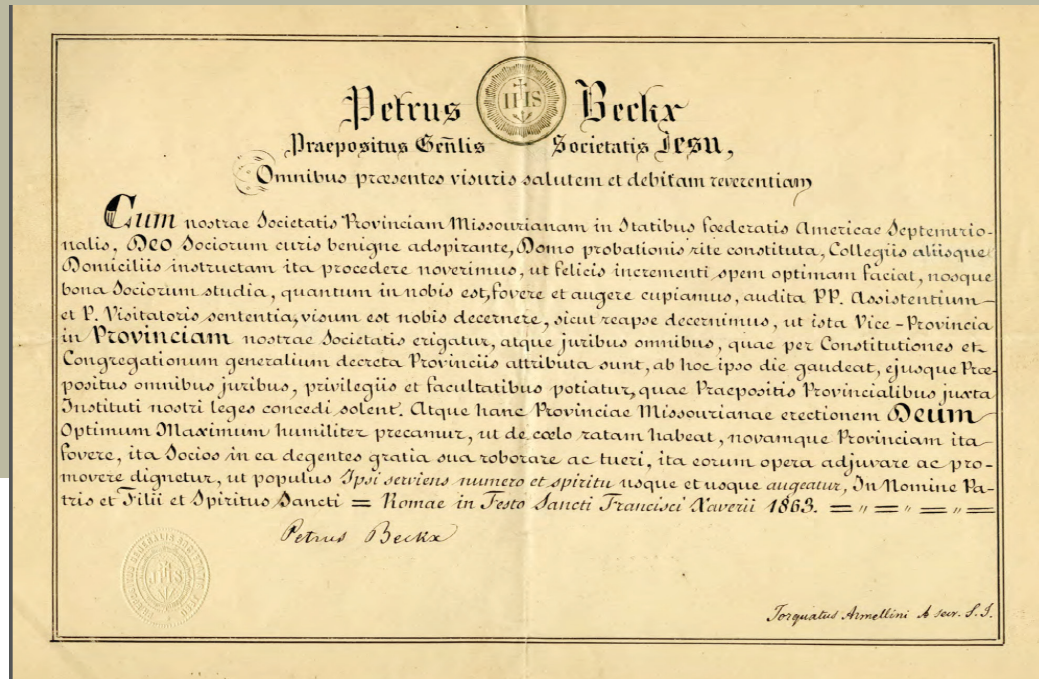 Petrus IHS Beckx
Praepositus Gen̄lis Societatis Iesu,
Omnibus præsentes visuris salutem et debitam reverentiam
Cum nostrae Societatis Provinciam Missourianam in Statibus fœderatis Americae Septemtrio-
nalis, Deo Sociorum curis benigne adspirante, Domo probationis rite constituta, Collegiis aliisque
Domiciliis instructam ita procedere noverimus, ut felicis incrementi spem optimam faciat, nosque
bona Sociorum studia, quantum in nobis est, fovere et augere cupiamus, audita PP. Assistentium
et P. Visitatoris sententia, visum est nobis decernere, sicut reapse decernimus, ut ista Vice-Provincia
in Provinciam nostrae Societatis erigatur, atque juribus omnibus, quae per Constitutiones et
Congregationum generalium decreta Provinciis attributa sunt, ab hoc ipso die gaudeat, ejusque Præ-
positus omnibus juribus, privilegiis et facultatibus potiatur, quae Praepositis Provincialibus juxta
Instituti nostri leges concedi solent. Atque hanc Provinciae Missourianae erectionem Deum
Optimum Maximum humiliter precamur, ut de cœlo ratam habeat, novamque Provinciam ita
fovere, ita Socios in ea degentes gratia sua roborare ac tueri, ita eorum opera adjuvare ac pro-
movere dignetur, ut populus Ipsi serviens numero et spiritu usque et usque augeatur, In Nomine Pa-
tris et Filii et Spiritus Sancti = Romae in Festo Sancti Francisci Xaverii 1863. = " = " = " =
Petrus Beckx
IHS
Torquatus Armellini A secr. S. J.